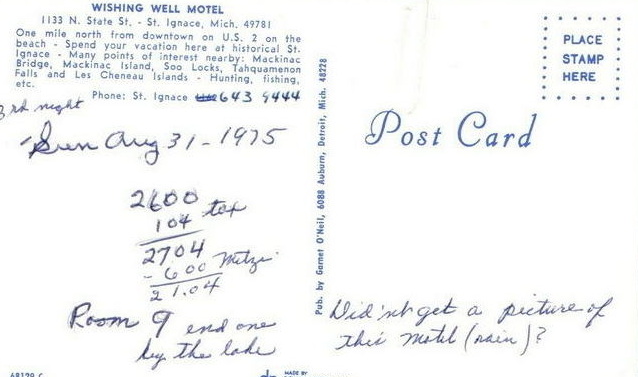 WISHING WELL MOTEL
1133 N. State St. - St. Ignace, Mich. 49781
One mile north from downtown on U.S. 2 on the
beach - Spend your vacation here at historical St.
Ignace - Many points of interest nearby: Mackinac
Bridge, Mackinac Island, Soo Locks, Tahquamenon
Falls and Les Cheneau Islands - Hunting, fishing,
etc.
Phone: St. Ignace 643 9444
3rd night
Sun Aug 31-1975
2600
104 tax
2704
- 600 Mitzi
21.04
Room 9 end one
by the lake
Pub. by Garnet O'Neil, 6088 Auburn, Detroit, Mich. 48228
PLACE
STAMP
HERE
Post Card
Didn't get a picture of
this Motel (rain)?
68129 C
MADE BY